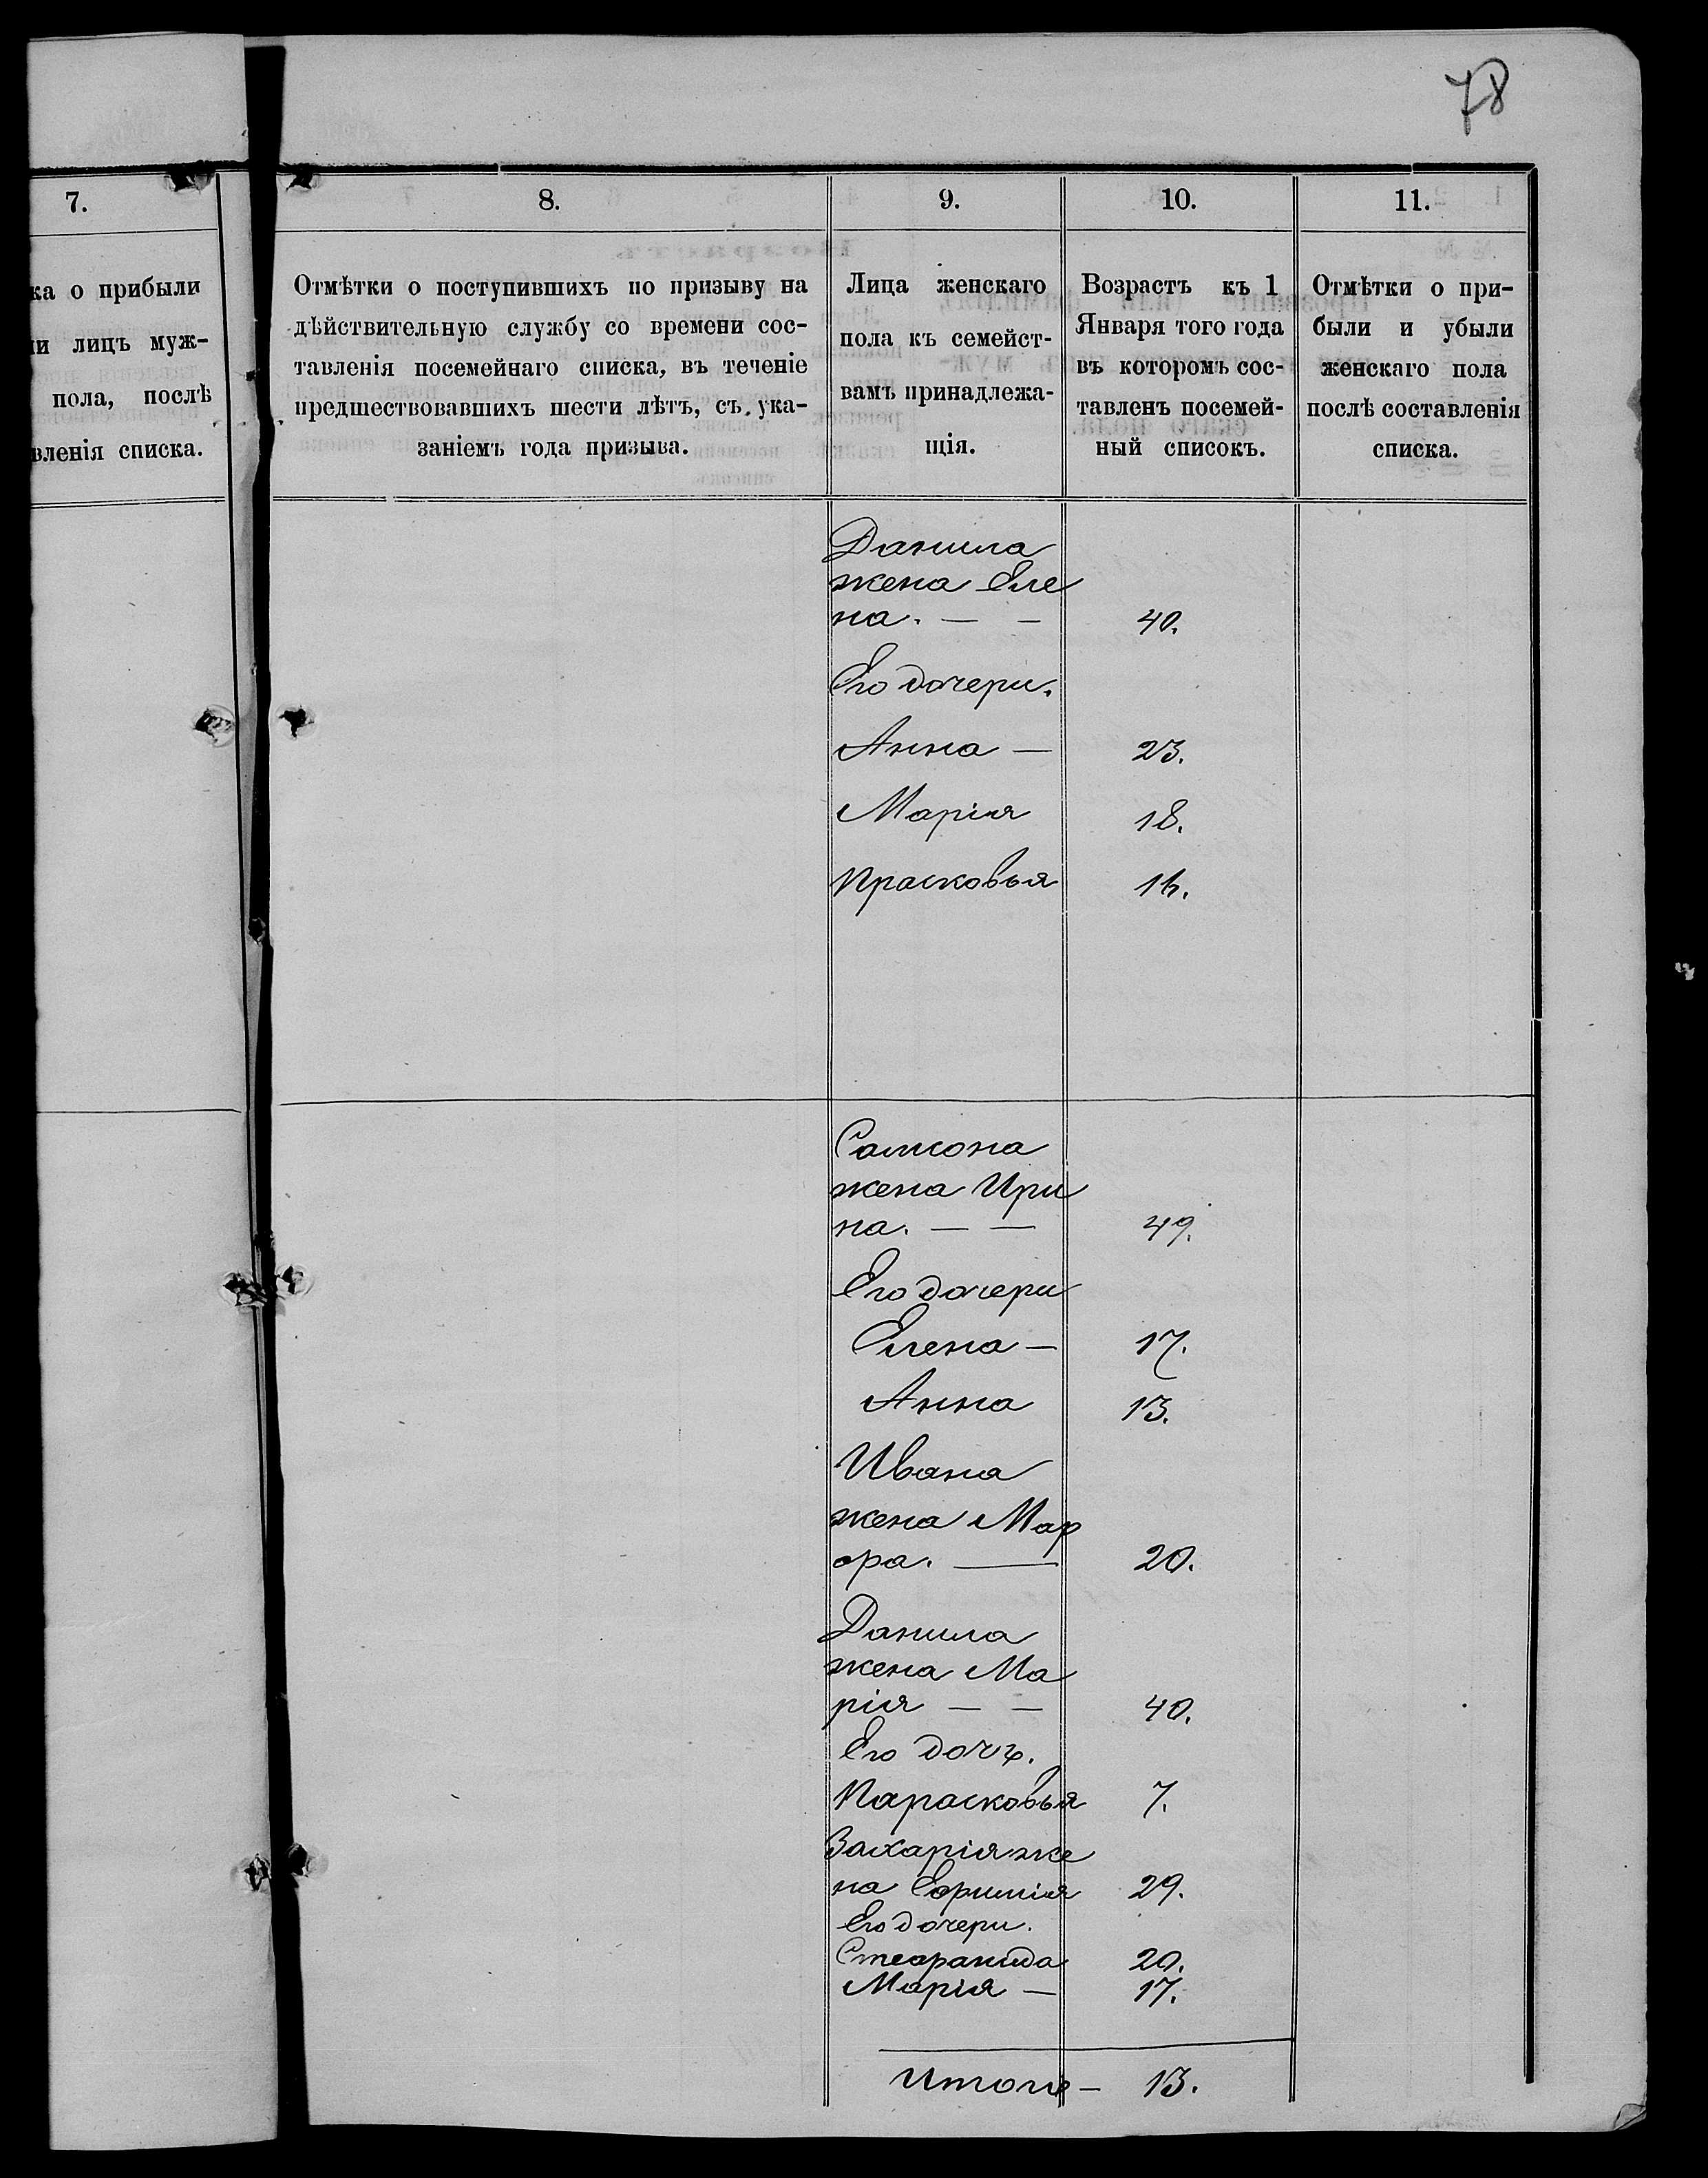 78
7.
ка о прибыли
ли лицъ муж-
пола, послѣ
вленія списка.
8.
Отмѣтки о поступившихъ по призыву на
дѣйствительную службу со времени сос-
тавленія посемейнаго списка, въ теченіе
предшествовавшихъ шести лѣтъ, съ ука-
заніемъ года призыва.
9.
Лица женскаго
пола къ семейст-
вамъ принадлежа-
щія.
10.
Возрастъ къ 1
Января того года
въ которомъ сос-
тавленъ посемей-
ный списокъ.
11.
Отмѣтки о при-
были и убыли
женскаго пола
послѣ составленія
списка.
Данила
жена Еле
на. — — 40.
Его дочери.
Анна — 23.
Марія 18.
Прасковья 16.
Самсона
жена Ири
на. — — 49.
Его дочери
Елена — 17.
Анна 13.
Ивана
жена Мар
ѳра. — 20.
Данила
жена Ма
рія — — 40.
Его дочь.
Парасковья 7.
Захарія же
на Ефимія 29.
Его дочери.
Стефанида 20.
Марія — 17.
Итого — 13.